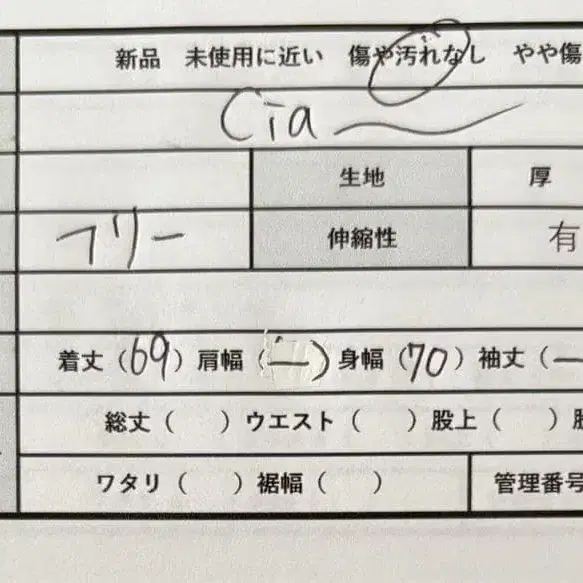 新品 未使用に近い 傷や汚れなし やや傷
Cia
生地 厚
フリー 伸縮性 有
着丈（69）肩幅（ー）身幅（70）袖丈（ー
総丈（ ）ウエスト（ ）股上（ ）股
ワタリ（ ）裾幅（ ） 管理番号